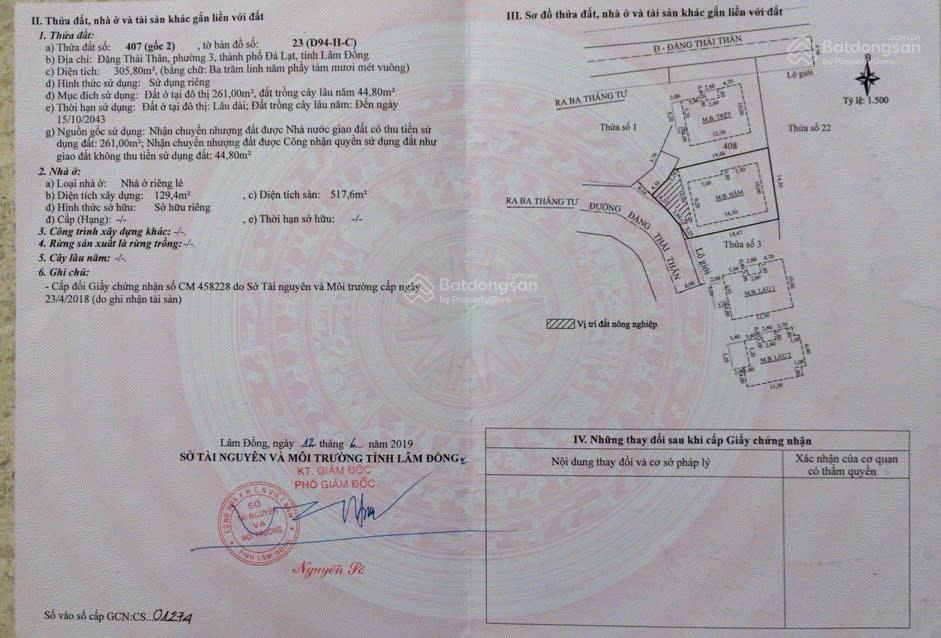 II. Thửa đất, nhà ở và tài sản khác gắn liền với đất
1. Thửa đất:
a) Thửa đất số: 407 (gốc 2) , tờ bản đồ số: 23 (D94-II-C)
b) Địa chỉ: Đặng Thái Thân, phường 3, thành phố Đà Lạt, tỉnh Lâm Đồng
c) Diện tích: 305,80m², (bằng chữ: Ba trăm linh năm phẩy tám mươi mét vuông)
d) Hình thức sử dụng: Sử dụng riêng
đ) Mục đích sử dụng: Đất ở tại đô thị 261,00m², đất trồng cây lâu năm 44,80m²
e) Thời hạn sử dụng: Đất ở tại đô thị: Lâu dài; Đất trồng cây lâu năm: Đến ngày
15/10/2043
g) Nguồn gốc sử dụng: Nhận chuyển nhượng đất được Nhà nước giao đất có thu tiền sử
dụng đất: 261,00m²; Nhận chuyển nhượng đất được Công nhận quyền sử dụng đất như
giao đất không thu tiền sử dụng đất: 44,80m²
2. Nhà ở:
a) Loại nhà ở: Nhà ở riêng lẻ
b) Diện tích xây dựng: 129,4m² , c) Diện tích sàn: 517,6m²
d) Hình thức sở hữu: Sở hữu riêng
đ) Cấp (Hạng): -/- , e) Thời hạn sở hữu: -/-
3. Công trình xây dựng khác: -/-.
4. Rừng sản xuất là rừng trồng:-/-.
5. Cây lâu năm: -/-.
6. Ghi chú:
- Cấp đổi Giấy chứng nhận số CM 458228 do Sở Tài nguyên và Môi trường cấp ngày
23/4/2018 (do ghi nhận tài sản)
Lâm Đồng, ngày 12 tháng 6 năm 2019
SỞ TÀI NGUYÊN VÀ MÔI TRƯỜNG TỈNH LÂM ĐỒNG
KT. GIÁM ĐỐC
PHÓ GIÁM ĐỐC
CỘNG HÒA X.H.C.N VIỆT NAM
SỞ
TÀI NGUYÊN
VÀ
MÔI TRƯỜNG
TỈNH LÂM ĐỒNG
Số vào sổ cấp GCN:CS...01274
III. Sơ đồ thửa đất, nhà ở và tài sản khác gắn liền với đất
Đ - ĐẶNG THÁI THÂN
Lộ giới
Tỷ lệ: 1.500
RA BA THÁNG TƯ
Thửa số 1
M.B. TRỆT
12,30
10,00
408
Thửa số 22
19,48
M.B. HẦM
14,30
14,50
18,47
RA BA THÁNG TƯ
ĐƯỜNG ĐẶNG THÁI THÂN
Lộ giới
6,00
Thửa số 3
M.B. LẦU 1
12,30
M.B. LẦU 2
11,30
Vị trí đất nông nghiệp
IV. Những thay đổi sau khi cấp Giấy chứng nhận
Nội dung thay đổi và cơ sở pháp lý
Xác nhận của cơ quan
có thẩm quyền
Batdongsan.com.vn
by PropertyGuru
Batdongsan.com.vn
by PropertyGuru